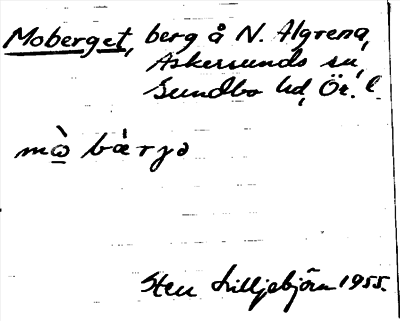 Moberget, berg å N. Algrena,
Askersunds sn,
Sundbo hd, Ör. l.
mὼ̲ bὰrγə
Sten Lilljebjörn 1955.